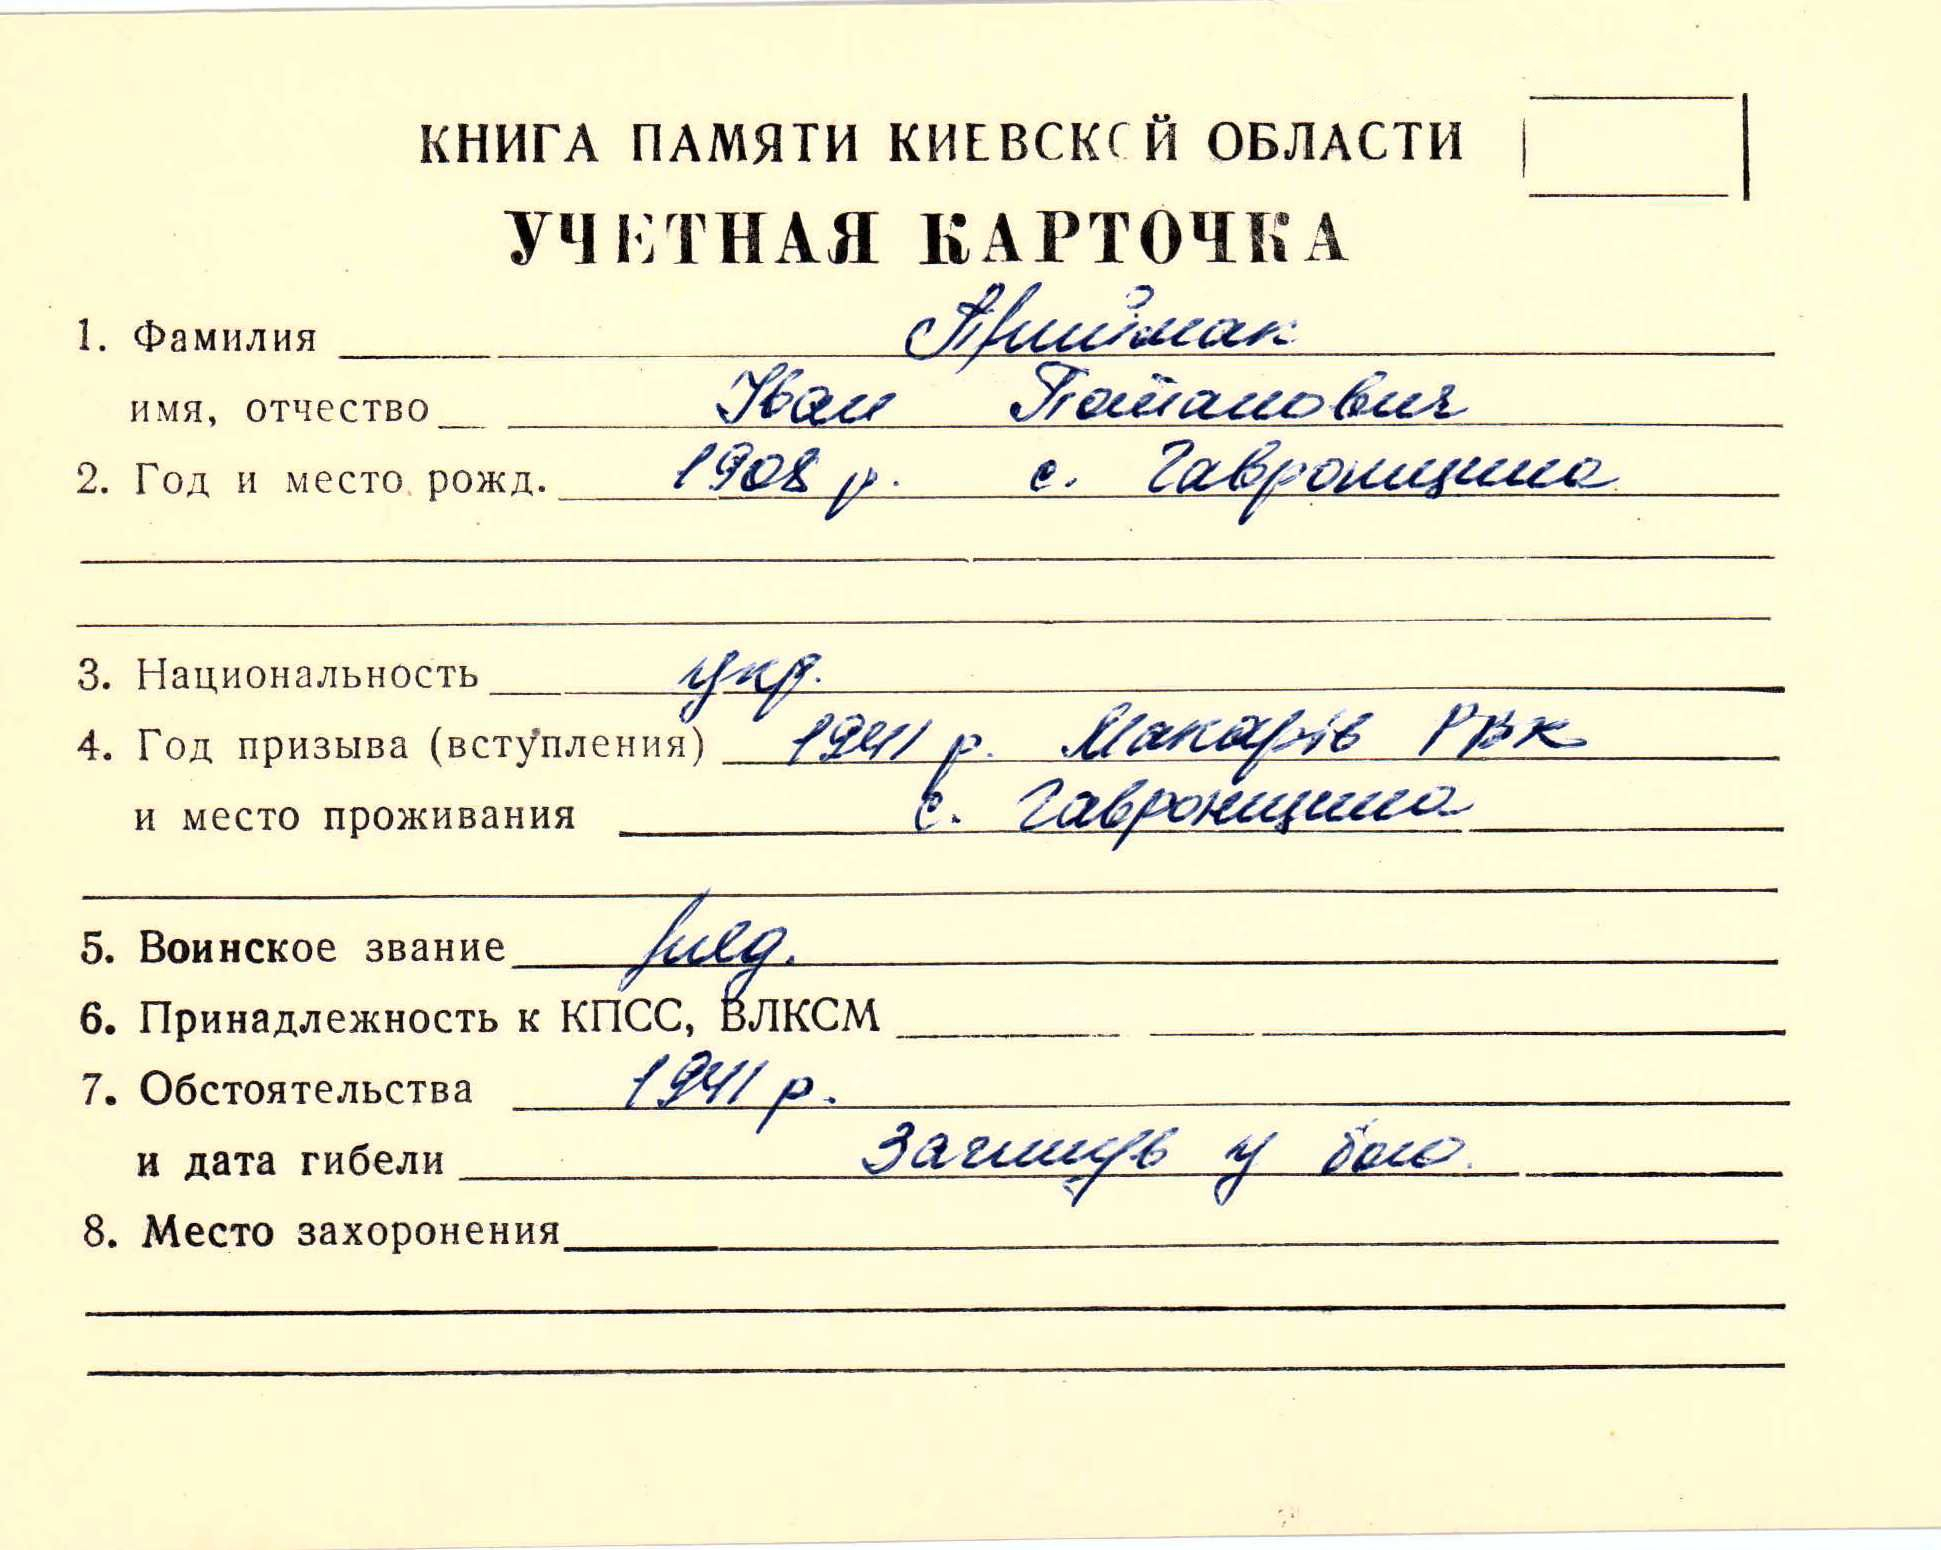 КНИГА ПАМЯТИ КИЕВСКОЙ ОБЛАСТИ
УЧЕТНАЯ КАРТОЧКА
1. Фамилия Приймак
имя, отчество Іван Потапович
2. Год и место рожд. 1908 р. с. Гавронщина
3. Национальность укр.
4. Год призыва (вступления) 1941 р. Макарів РВК
и место проживания с. Гавронщина
5. Воинское звание
6. Принадлежность к КПСС, ВЛКСМ
7. Обстоятельства 1941 р.
и дата гибели Загинув у бою.
8. Место захоронения